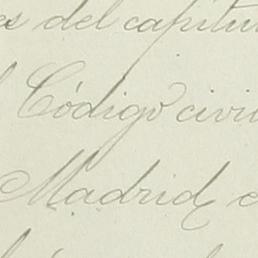 es del capitu
Código civi
Madrid